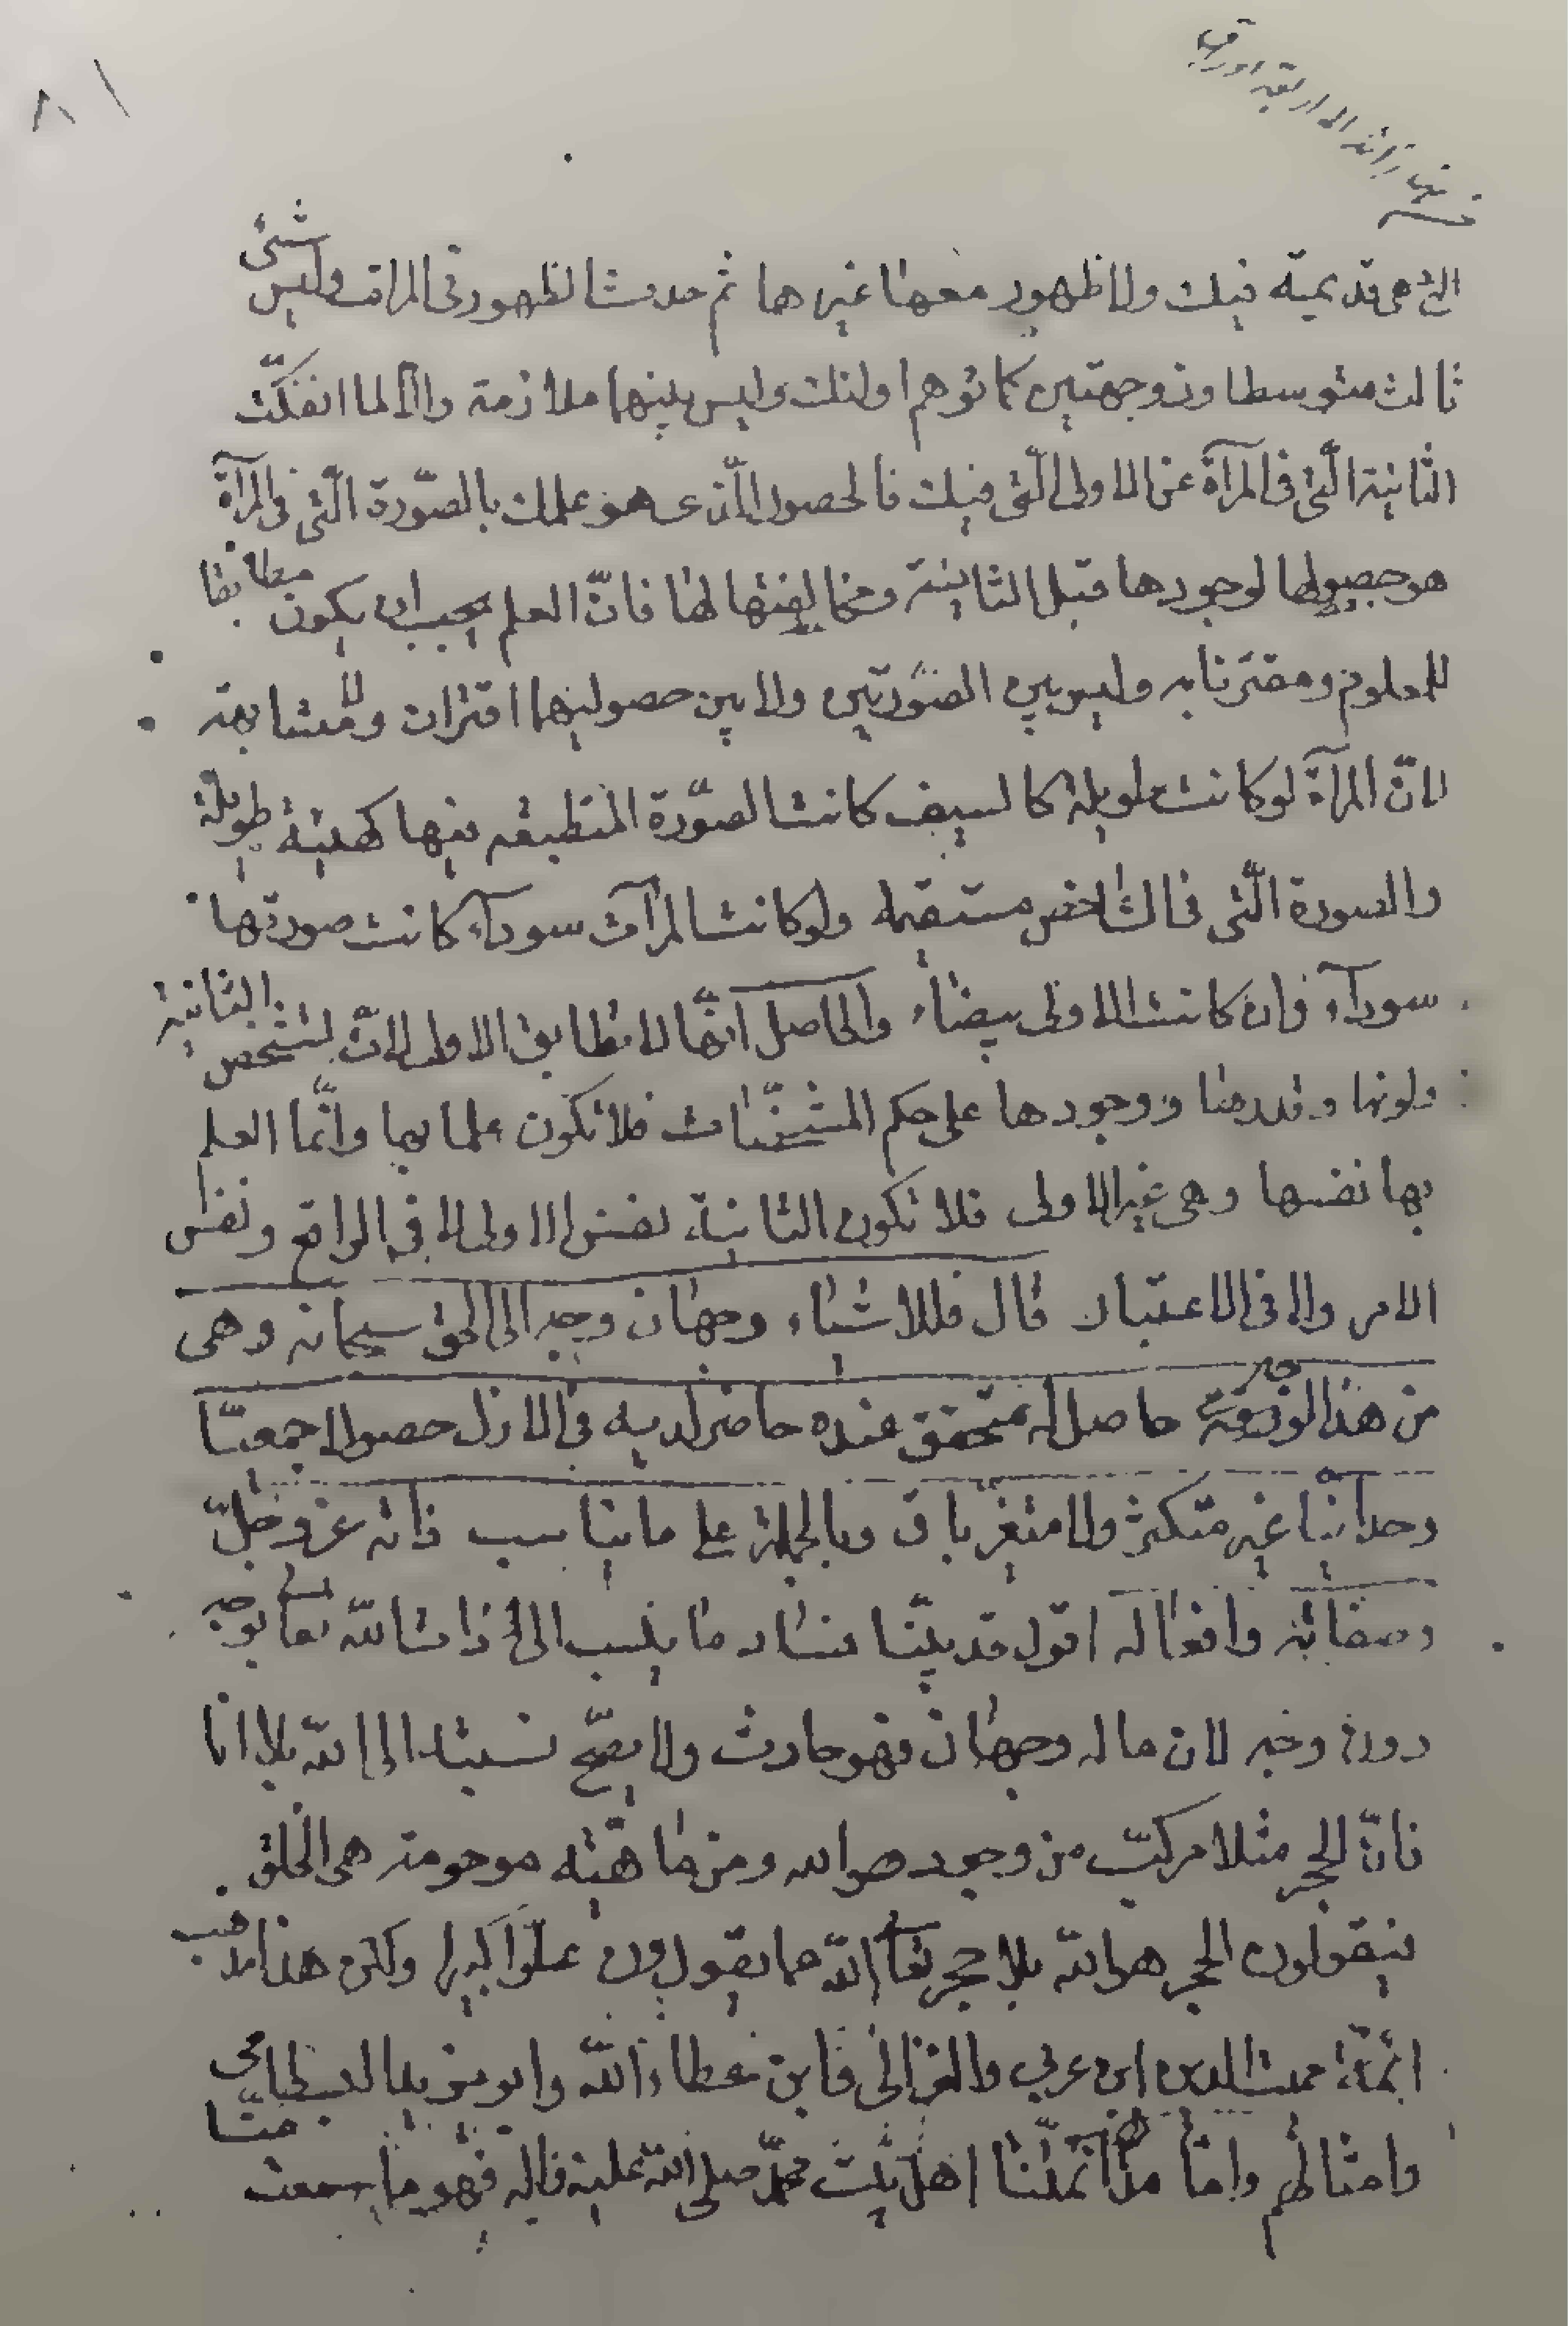 ٨١
التى هى قديمية فيك ولا ظهور معها غيرها ثم حدث الظهور فى المرات وليس شئ
ثالث متوسطا وذو جهتين كما توهم اولئك وليس بينهما ملازمة والا لما انفكّت
الثانية الّتى فى المرآة عن الاولى الّتى فيك فالحصول الّذى هو علمك بالصّورة الّتى فى المرآة
هو حصولها لوجودها قبل الثانية ومخالفتها لها فانّ العلم يجب ان يكون مطابقا
للمعلوم ومقترنا به وليس بين الصّورتين ولا بين حصوليهما اقتران ولا مشابهة
لانّ المرآة لو كانت طويلة كالسيف كانت الصّورة المنطبعه فيها كهيئة طويلة
والصورة الّتى فى الشاخص مستقيمه ولو كانت المرآت سودآء كانت صورتها
سودآء وان كانت الاولى بيضاء والحاصل انّها لا تطابق الاولى لانّ تشخص الثانية
ولونها وقدرها ووجودها على حكم المشخّصات فلا تكون علما بها وانّما العلم
بها نفسها وهى غير الاولى فلا تكون الثانية نفس الاولى لا فى الواقع ونفس
الامر ولا فى الاعتبار قال فللاشياء وجهان وجه الى الحق سبحانه وهى
من هذا الوجه حاصل له متحقق عنده حاضر لديه فى الازل حصولا جمعيّا
وحدانيّا غير متكثر ولا متغيّر باق وبالجملة على ما يناسب ذاته عزّ وجلّ
وصفاته وافعاله اقول قد بيّنّا فساد ما ينسب الى ذات الله تعالى بوجه
دون وجه لان ما له وجهان فهو حادث ولا يصحّ نسبته الى الله بلا انا
فانّ الحجر مثلا مركّب من وجود هو الله ومن ماهيّته موهومة هى الخلق
فيقولون الحجر هو الله بلا حجر تعالى الله عما يقولون علوّا كبيرا ولكن هذا مذهب
ائمّة مميت الدين ابن عربي والغزالى وابن عطاء الله وابو يزيد البسطامى
وامثالهم وامّا مذهب ائمّتنا اهل بيت محمّد صلى الله عليه واله فهو ما سمعت منّا